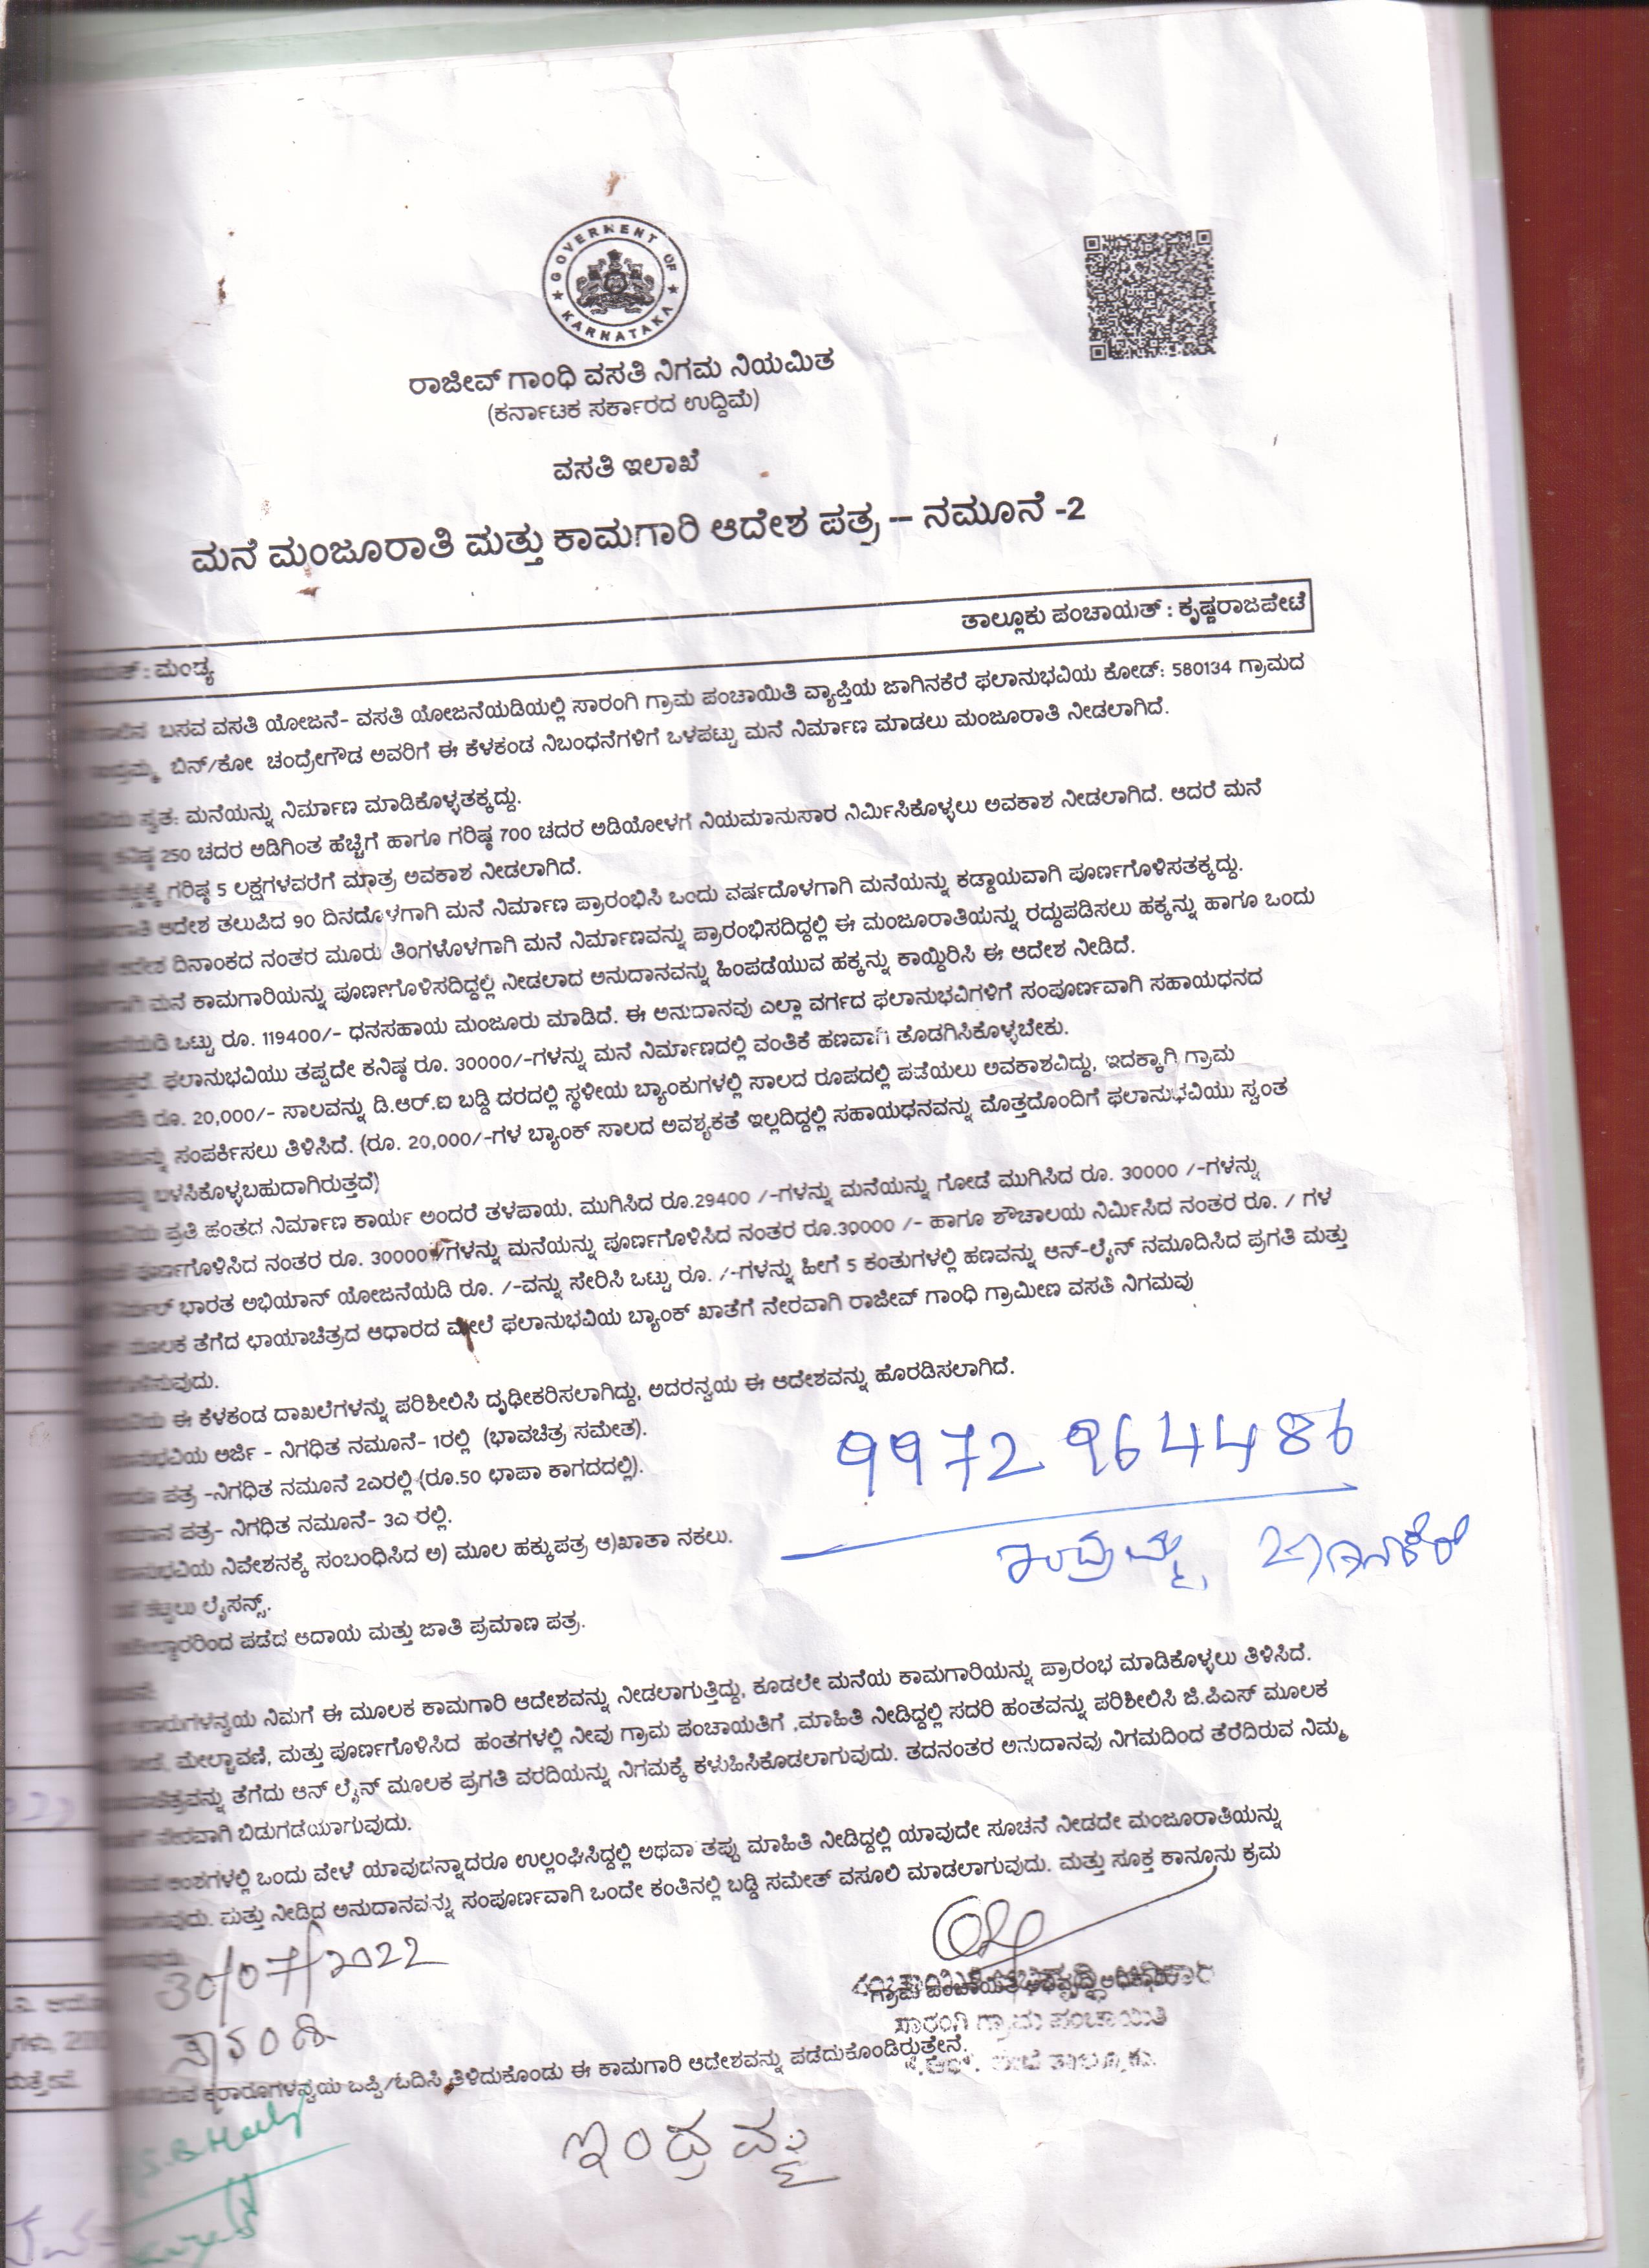 GOVERNENT OF KARNATAKA
ರಾಜೀವ್ ಗಾಂಧಿ ವಸತಿ ನಿಗಮ ನಿಯಮಿತ
(ಕರ್ನಾಟಕ ಸರ್ಕಾರದ ಉದ್ದಿಮೆ)
ವಸತಿ ಇಲಾಖೆ
ಮನೆ ಮಂಜೂರಾತಿ ಮತ್ತು ಕಾಮಗಾರಿ ಆದೇಶ ಪತ್ರ -- ನಮೂನೆ -2
ತಾಲ್ಲೂಕು ಪಂಚಾಯತ್ : ಕೃಷ್ಣರಾಜಪೇಟೆ
: ಮಂಡ್ಯ
ಬಸವ ವಸತಿ ಯೋಜನೆ- ವಸತಿ ಯೋಜನೆಯಡಿಯಲ್ಲಿ ಸಾರಂಗಿ ಗ್ರಾಮ ಪಂಚಾಯಿತಿ ವ್ಯಾಪ್ತಿಯ ಜಾಗಿನಕೆರೆ ಫಲಾನುಭವಿಯ ಕೋಡ್: 580134 ಗ್ರಾಮದ
ಬಿನ್/ಕೋ ಚಂದ್ರೇಗೌಡ ಅವರಿಗೆ ಈ ಕೆಳಕಂಡ ನಿಬಂಧನೆಗಳಿಗೆ ಒಳಪಟ್ಟು ಮನೆ ನಿರ್ಮಾಣ ಮಾಡಲು ಮಂಜೂರಾತಿ ನೀಡಲಾಗಿದೆ.
ಸ್ವತ: ಮನೆಯನ್ನು ನಿರ್ಮಾಣ ಮಾಡಿಕೊಳ್ಳತಕ್ಕದ್ದು.
ಕನಿಷ್ಠ 250 ಚದರ ಅಡಿಗಿಂತ ಹೆಚ್ಚಿಗೆ ಹಾಗೂ ಗರಿಷ್ಠ 700 ಚದರ ಅಡಿಯೋಳಗೆ ನಿಯಮಾನುಸಾರ ನಿರ್ಮಿಸಿಕೊಳ್ಳಲು ಅವಕಾಶ ನೀಡಲಾಗಿದೆ. ಆದರೆ ಮನೆ
ಗರಿಷ್ಠ 5 ಲಕ್ಷಗಳವರೆಗೆ ಮಾತ್ರ ಅವಕಾಶ ನೀಡಲಾಗಿದೆ.
ಆದೇಶ ತಲುಪಿದ 90 ದಿನದೊಳಗಾಗಿ ಮನೆ ನಿರ್ಮಾಣ ಪ್ರಾರಂಭಿಸಿ ಒಂದು ವರ್ಷದೊಳಗಾಗಿ ಮನೆಯನ್ನು ಕಡ್ಡಾಯವಾಗಿ ಪೂರ್ಣಗೊಳಿಸತಕ್ಕದ್ದು.
ಆದೇಶ ದಿನಾಂಕದ ನಂತರ ಮೂರು ತಿಂಗಳೊಳಗಾಗಿ ಮನೆ ನಿರ್ಮಾಣವನ್ನು ಪ್ರಾರಂಭಿಸದಿದ್ದಲ್ಲಿ ಈ ಮಂಜೂರಾತಿಯನ್ನು ರದ್ದುಪಡಿಸಲು ಹಕ್ಕನ್ನು ಹಾಗೂ ಒಂದು
ಮನೆ ಕಾಮಗಾರಿಯನ್ನು ಪೂರ್ಣಗೊಳಿಸದಿದ್ದಲ್ಲಿ ನೀಡಲಾದ ಅನುದಾನವನ್ನು ಹಿಂಪಡೆಯುವ ಹಕ್ಕನ್ನು ಕಾಯ್ದಿರಿಸಿ ಈ ಆದೇಶ ನೀಡಿದೆ.
ಒಟ್ಟು ರೂ. 119400/- ಧನಸಹಾಯ ಮಂಜೂರು ಮಾಡಿದೆ. ಈ ಅನುದಾನವು ಎಲ್ಲಾ ವರ್ಗದ ಫಲಾನುಭವಿಗಳಿಗೆ ಸಂಪೂರ್ಣವಾಗಿ ಸಹಾಯಧನದ
ಫಲಾನುಭವಿಯು ತಪ್ಪದೇ ಕನಿಷ್ಠ ರೂ. 30000/-ಗಳನ್ನು ಮನೆ ನಿರ್ಮಾಣದಲ್ಲಿ ವಂತಿಕೆ ಹಣವಾಗಿ ತೊಡಗಿಸಿಕೊಳ್ಳಬೇಕು.
ರೂ. 20,000/- ಸಾಲವನ್ನು ಡಿ.ಆರ್.ಐ ಬಡ್ಡಿ ದರದಲ್ಲಿ ಸ್ಥಳೀಯ ಬ್ಯಾಂಕುಗಳಲ್ಲಿ ಸಾಲದ ರೂಪದಲ್ಲಿ ಪಡೆಯಲು ಅವಕಾಶವಿದ್ದು, ಇದಕ್ಕಾಗಿ ಗ್ರಾಮ
ಸಂಪರ್ಕಿಸಲು ತಿಳಿಸಿದೆ. (ರೂ. 20,000/-ಗಳ ಬ್ಯಾಂಕ್ ಸಾಲದ ಅವಶ್ಯಕತೆ ಇಲ್ಲದಿದ್ದಲ್ಲಿ ಸಹಾಯಧನವನ್ನು ಮೊತ್ತದೊಂದಿಗೆ ಫಲಾನುಭವಿಯು ಸ್ವಂತ
ಬಳಸಿಕೊಳ್ಳಬಹುದಾಗಿರುತ್ತದೆ)
ಪ್ರತಿ ಹಂತದ ನಿರ್ಮಾಣ ಕಾರ್ಯ ಅಂದರೆ ತಳಪಾಯ, ಮುಗಿಸಿದ ರೂ.29400 /-ಗಳನ್ನು ಮನೆಯನ್ನು ಗೋಡೆ ಮುಗಿಸಿದ ರೂ. 30000 /-ಗಳನ್ನು
ಪೂರ್ಣಗೊಳಿಸಿದ ನಂತರ ರೂ. 30000 /ಗಳನ್ನು ಮನೆಯನ್ನು ಪೂರ್ಣಗೊಳಿಸಿದ ನಂತರ ರೂ.30000 /- ಹಾಗೂ ಶೌಚಾಲಯ ನಿರ್ಮಿಸಿದ ನಂತರ ರೂ. / ಗಳ
ನಿರ್ಮಲ್ ಭಾರತ ಅಭಿಯಾನ್ ಯೋಜನೆಯಡಿ ರೂ. /-ವನ್ನು ಸೇರಿಸಿ ಒಟ್ಟು ರೂ. /-ಗಳನ್ನು ಹೀಗೆ 5 ಕಂತುಗಳಲ್ಲಿ ಹಣವನ್ನು ಆನ್-ಲೈನ್ ನಮೂದಿಸಿದ ಪ್ರಗತಿ ಮತ್ತು
ಮೂಲಕ ತೆಗೆದ ಛಾಯಾಚಿತ್ರದ ಆಧಾರದ ಮೇಲೆ ಫಲಾನುಭವಿಯ ಬ್ಯಾಂಕ್ ಖಾತೆಗೆ ನೇರವಾಗಿ ರಾಜೀವ್ ಗಾಂಧಿ ಗ್ರಾಮೀಣ ವಸತಿ ನಿಗಮವು
ಈ ಕೆಳಕಂಡ ದಾಖಲೆಗಳನ್ನು ಪರಿಶೀಲಿಸಿ ದೃಢೀಕರಿಸಲಾಗಿದ್ದು, ಅದರನ್ವಯ ಈ ಆದೇಶವನ್ನು ಹೊರಡಿಸಲಾಗಿದೆ.
ಅರ್ಜಿ - ನಿಗಧಿತ ನಮೂನೆ- 1ರಲ್ಲಿ (ಭಾವಚಿತ್ರ ಸಮೇತ).
ಪತ್ರ -ನಿಗಧಿತ ನಮೂನೆ 2ಎರಲ್ಲಿ (ರೂ.50 ಛಾಪಾ ಕಾಗದದಲ್ಲಿ).
ಪತ್ರ- ನಿಗಧಿತ ನಮೂನೆ- 3ಎ ರಲ್ಲಿ.
9972 964486
ನಿವೇಶನಕ್ಕೆ ಸಂಬಂಧಿಸಿದ ಅ) ಮೂಲ ಹಕ್ಕುಪತ್ರ ಆ)ಖಾತಾ ನಕಲು.
ಕಟ್ಟಲು ಲೈಸನ್ಸ್.
ಪಡೆದ ಆದಾಯ ಮತ್ತು ಜಾತಿ ಪ್ರಮಾಣ ಪತ್ರ.
ನಿಮಗೆ ಈ ಮೂಲಕ ಕಾಮಗಾರಿ ಆದೇಶವನ್ನು ನೀಡಲಾಗುತ್ತಿದ್ದು, ಕೂಡಲೇ ಮನೆಯ ಕಾಮಗಾರಿಯನ್ನು ಪ್ರಾರಂಭ ಮಾಡಿಕೊಳ್ಳಲು ತಿಳಿಸಿದೆ.
ಮೇಲ್ಚಾವಣಿ, ಮತ್ತು ಪೂರ್ಣಗೊಳಿಸಿದ ಹಂತಗಳಲ್ಲಿ ನೀವು ಗ್ರಾಮ ಪಂಚಾಯತಿಗೆ ,ಮಾಹಿತಿ ನೀಡಿದ್ದಲ್ಲಿ ಸದರಿ ಹಂತವನ್ನು ಪರಿಶೀಲಿಸಿ ಜಿ.ಪಿಎಸ್ ಮೂಲಕ
ತೆಗೆದು ಆನ್ ಲೈನ್ ಮೂಲಕ ಪ್ರಗತಿ ವರದಿಯನ್ನು ನಿಗಮಕ್ಕೆ ಕಳುಹಿಸಿಕೊಡಲಾಗುವುದು. ತದನಂತರ ಅನುದಾನವು ನಿಗಮದಿಂದ ತೆರೆದಿರುವ ನಿಮ್ಮ
ನೇರವಾಗಿ ಬಿಡುಗಡೆಯಾಗುವುದು.
ಅಂಶಗಳಲ್ಲಿ ಒಂದು ವೇಳೆ ಯಾವುದನ್ನಾದರೂ ಉಲ್ಲಂಘಿಸಿದ್ದಲ್ಲಿ ಅಥವಾ ತಪ್ಪು ಮಾಹಿತಿ ನೀಡಿದ್ದಲ್ಲಿ ಯಾವುದೇ ಸೂಚನೆ ನೀಡದೇ ಮಂಜೂರಾತಿಯನ್ನು
ಮತ್ತು ನೀಡಿದ ಅನುದಾನವನ್ನು ಸಂಪೂರ್ಣವಾಗಿ ಒಂದೇ ಕಂತಿನಲ್ಲಿ ಬಡ್ಡಿ ಸಮೇತ್ ವಸೂಲಿ ಮಾಡಲಾಗುವುದು. ಮತ್ತು ಸೂಕ್ತ ಕಾನೂನು ಕ್ರಮ
30/07/2022
ಗ್ರಾಮ ಪಂಚಾಯತಿ ಅಭಿವೃದ್ಧಿ ಅಧಿಕಾರಿ
ಸಾರಂಗಿ ಗ್ರಾಮ ಪಂಚಾಯಿತಿ
ಸಾರಂಗಿ
ಕರಾರುಗಳನ್ವಯ ಒಪ್ಪಿ/ಓದಿಸಿ ತಿಳಿದುಕೊಂಡು ಈ ಕಾಮಗಾರಿ ಆದೇಶವನ್ನು ಪಡೆದುಕೊಂಡಿರುತ್ತೇನೆ.
ಇಂದ್ರಮ್ಮ